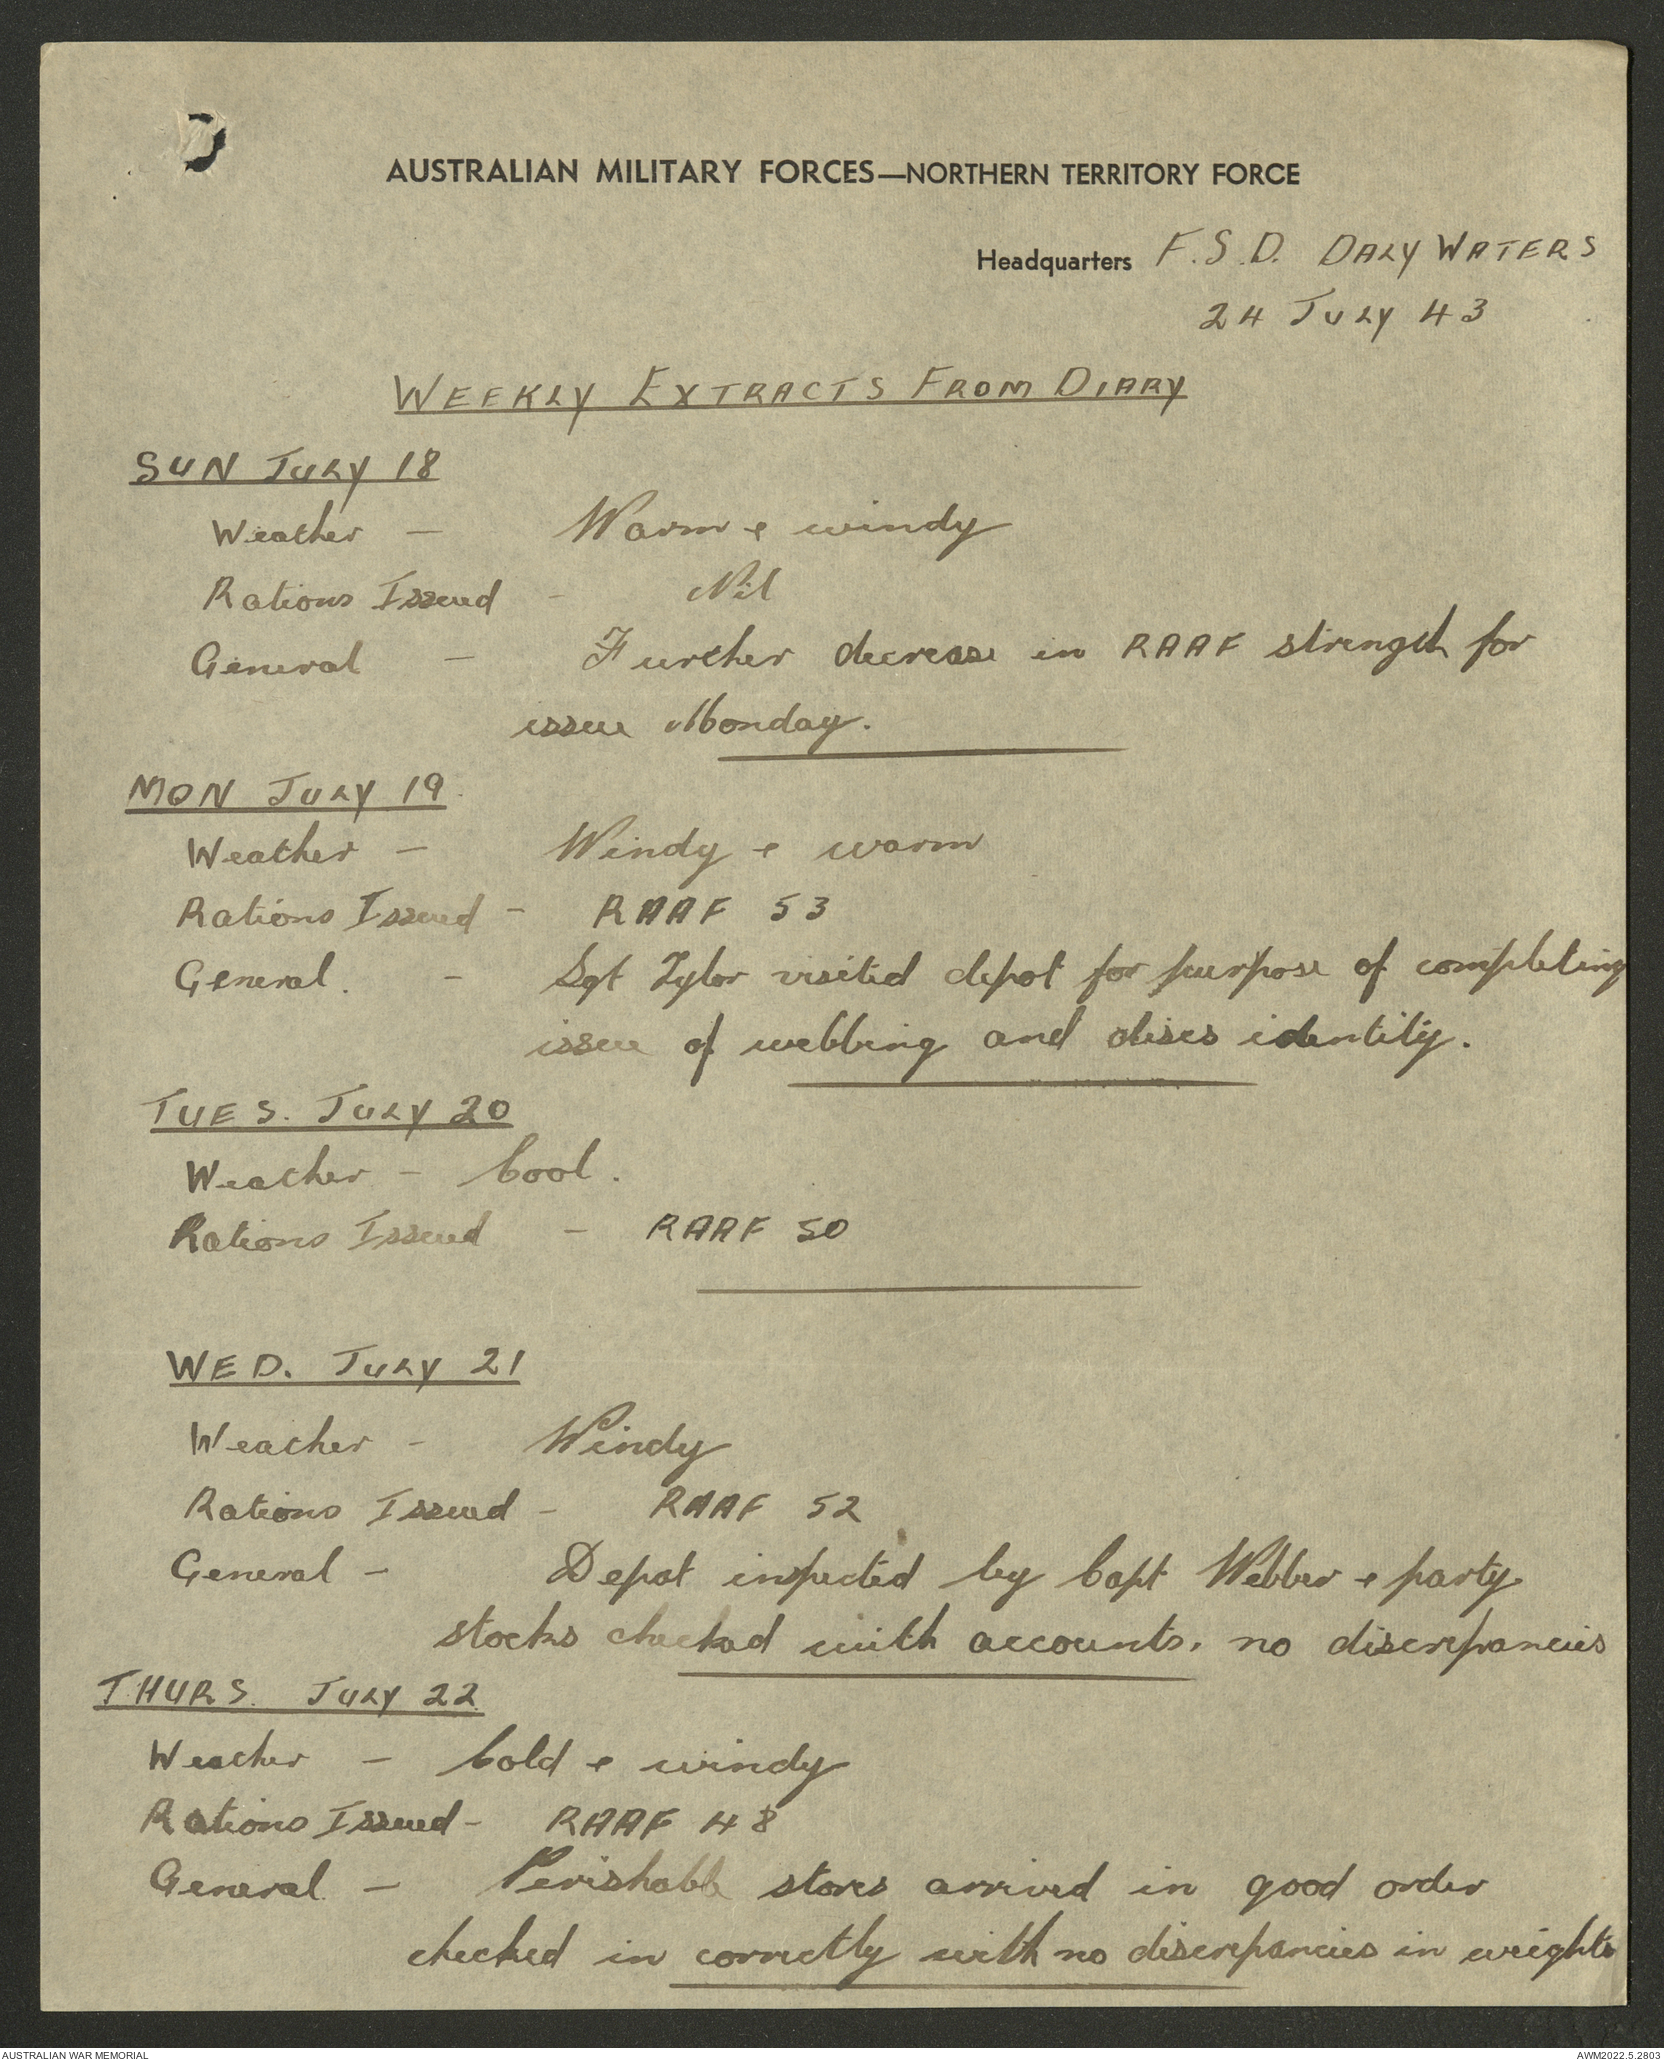 AUSTRALIAN MILITARY FORCES—NORTHERN TERRITORY FORCE
Headquarters F.S.D. DALY WATERS
24 JULY 43
WEEKLY EXTRACTS FROM DIARY
SUN JULY 18
Weather - Warm & windy
Rations Issued - Nil
General - Further decrease in RAAF strength for
issue Monday.
MON JULY 19
Weather - Windy & warm
Rations Issued - RAAF 53
General. - Sgt Tylor visited depot for purpose of completing
issue of webbing and discs identity.
TUES. JULY 20
Weather - Cool.
Rations Issued - RAAF 50
WED. JULY 21
Weather - Windy
Rations Issued - RAAF 52
General - Depot inspected by Capt Webber & party
stocks checked with accounts. no discrepancies
THURS. JULY 22
Weather - Cold & windy
Rations Issued - RAAF 48
General - Perishable stores arrived in good order
checked in correctly with no discrepancies in weights
AUSTRALIAN WAR MEMORIAL
AWM2022.5.2803